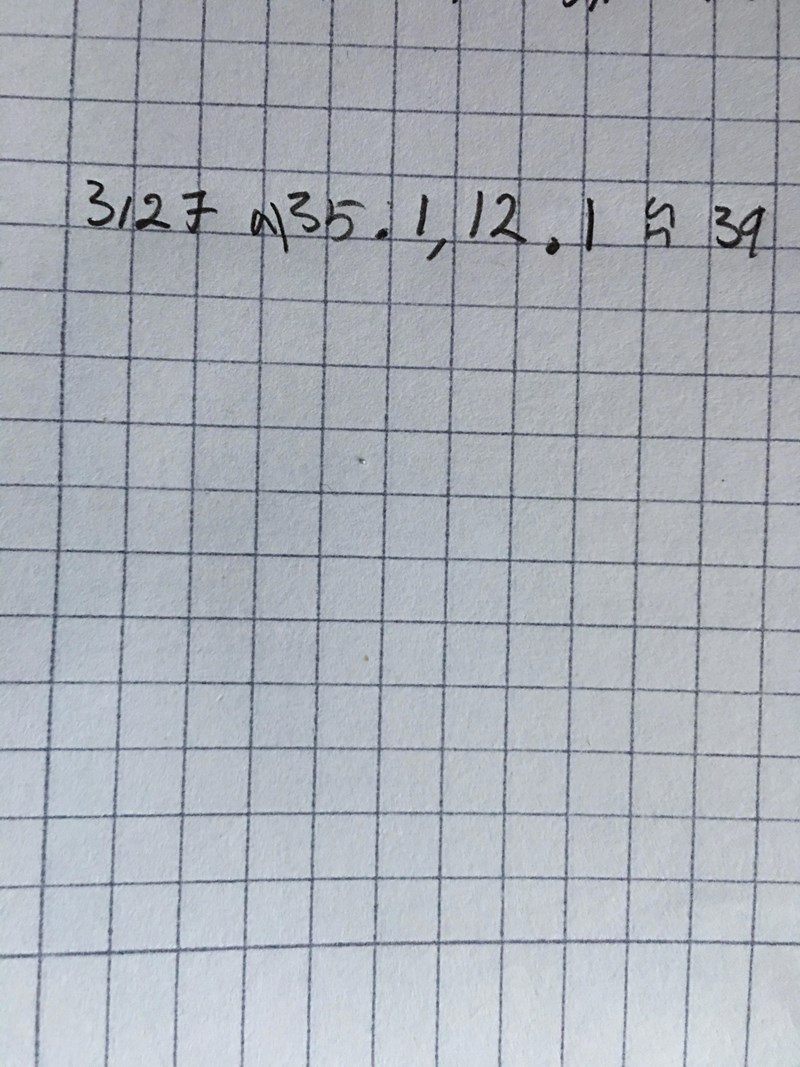 3127 a) 35 . 1,12 . 1 ≈ 39